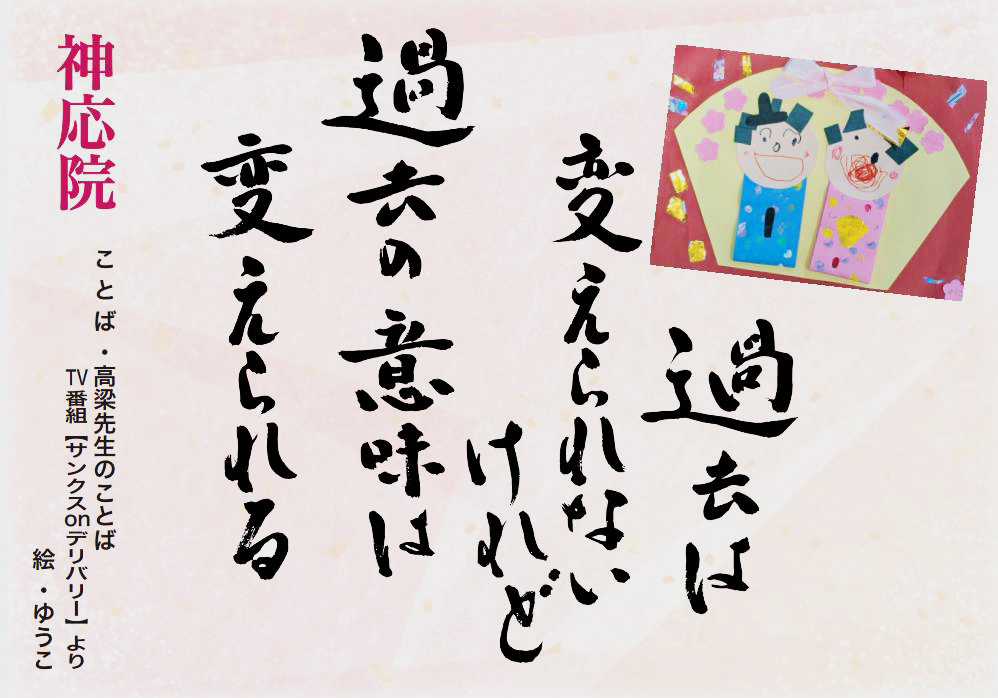 過去は
変えられない
けれど
過去の意味は
変えられる
神応院
ことば・高梁先生のことば
TV番組【サンクスonデリバリー】より
絵・ゆうこ